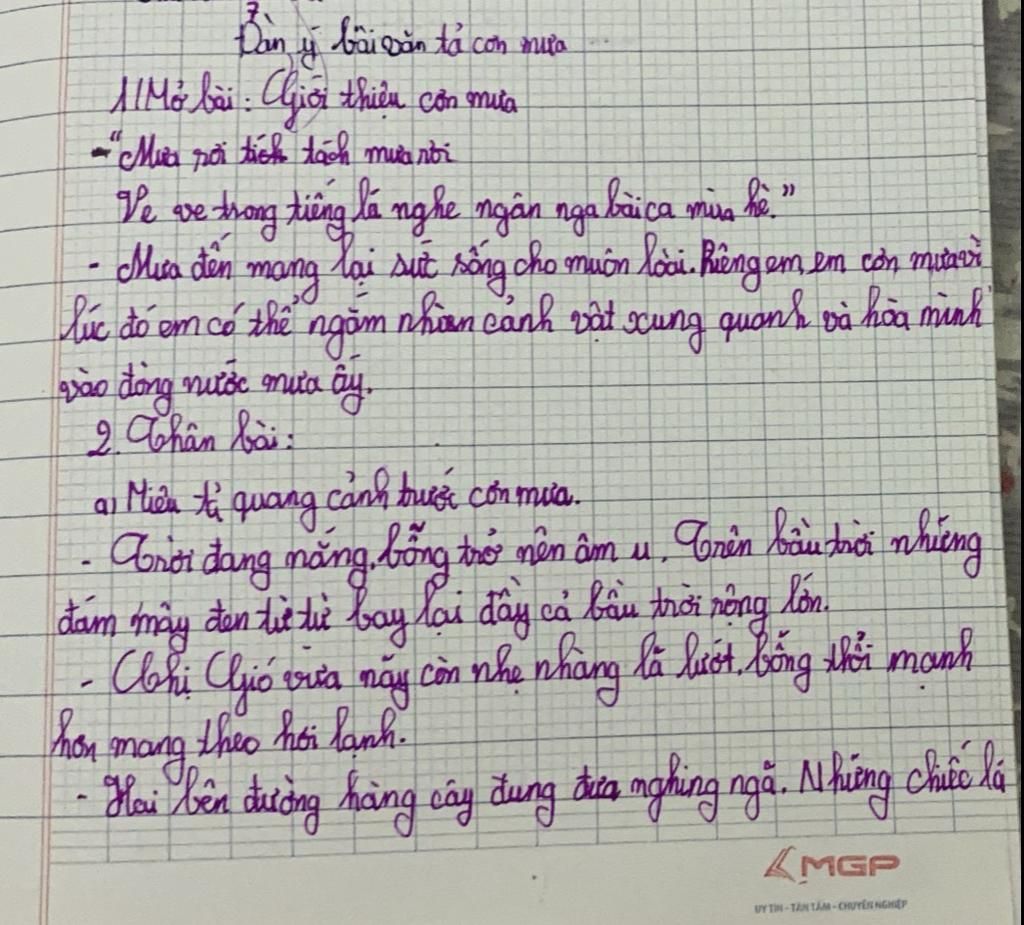 Dàn ý bài văn tả cơn mưa
1. Mở bài: Giới thiệu cơn mưa
- "Mưa rơi tích tách mưa rơi
Ve ve trong tiếng lá nghe ngân nga bài ca mùa hè."
- Mưa đến mang lại sức sống cho muôn loài. Riêng em em cơn mưa vì
lúc đó em có thể ngắm nhìn cảnh vật xung quanh và hòa mình
vào dòng nước mưa ấy.
2. Thân bài:
a) Miêu tả quang cảnh trước cơn mưa.
- Trời đang nắng, bỗng trở nên âm u. Trên bầu trời những
đám mây đen từ từ bay lại đầy cả bầu trời rộng lớn.
- Chị Gió vừa nãy còn nhẹ nhàng lả lướt, bỗng thổi mạnh
hơn mang theo hơi lạnh.
- Hai bên đường hàng cây đung đưa nghing ngã. Những chiếc lá
MGP
UY TÍN - TẬN TÂM - CHUYÊN NGHIỆP